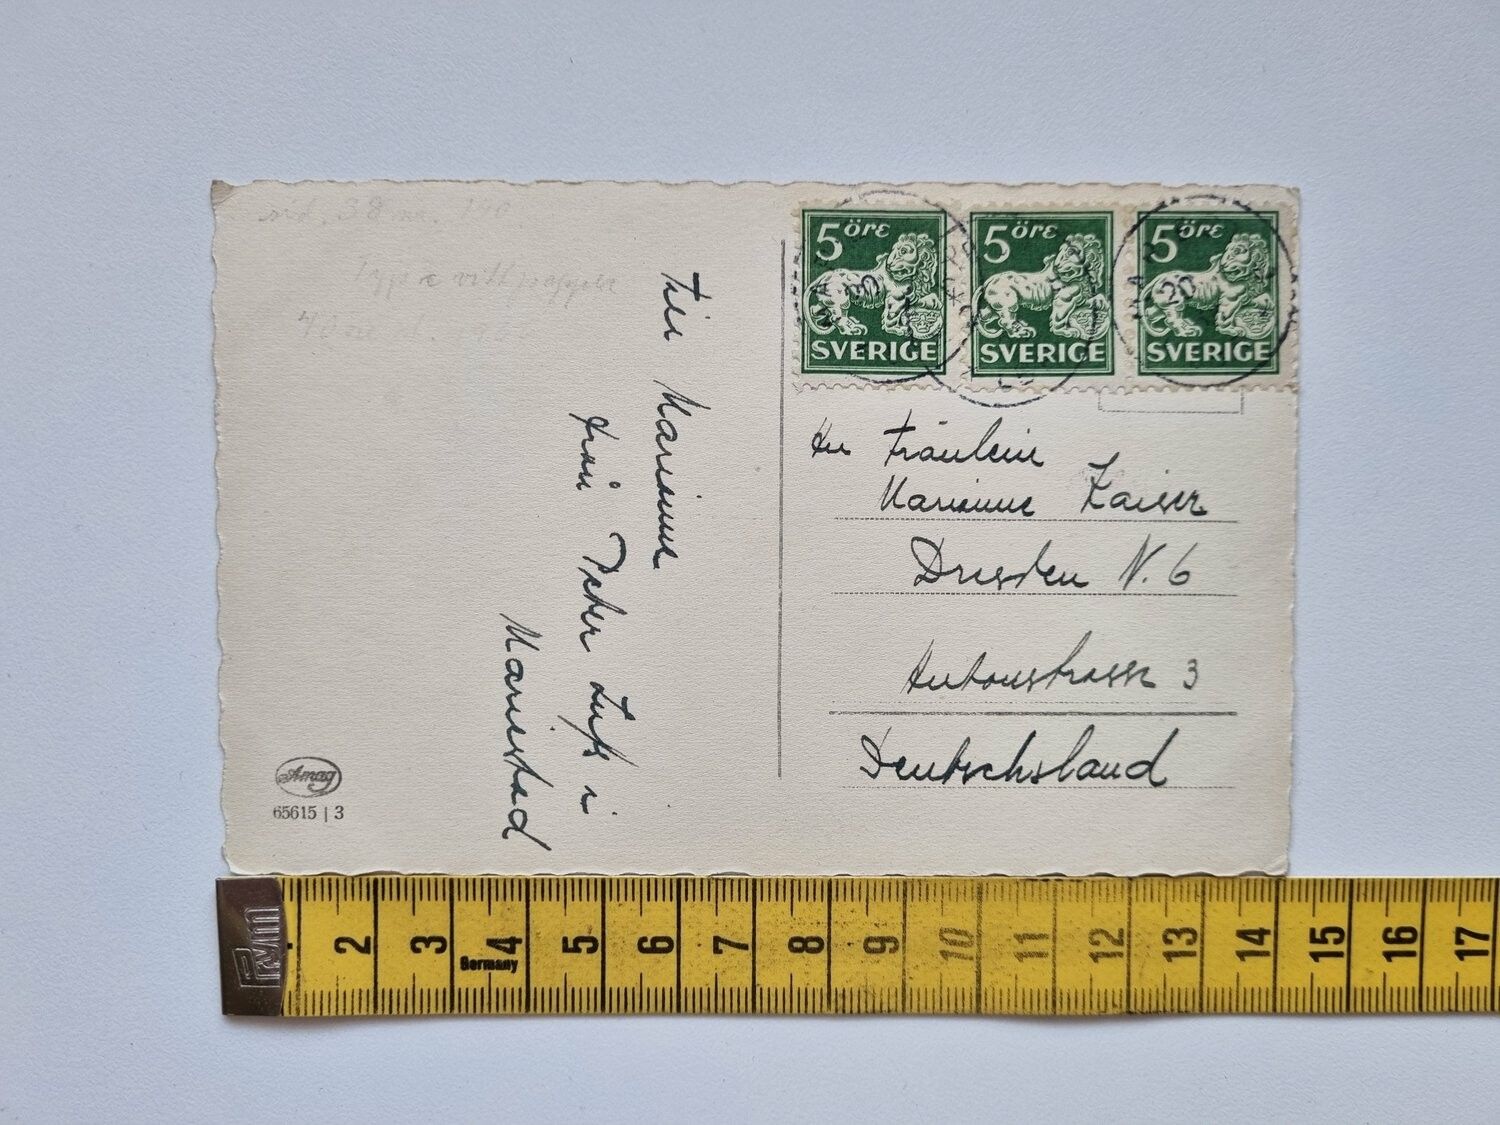 5 öre
SVERIGE
5 öre
SVERIGE
5 öre
SVERIGE
20
20
Till Marianne
från Peter Luft i
Mariestad
An Fräulein
Marianne Kaiser
Dresden N. 6
Antonstrasse 3
Deutschsland
Amag
65615 | 3
PRYM
2 3 4 5 6 7 8 9 10 11 12 13 14 15 16 17
Germany